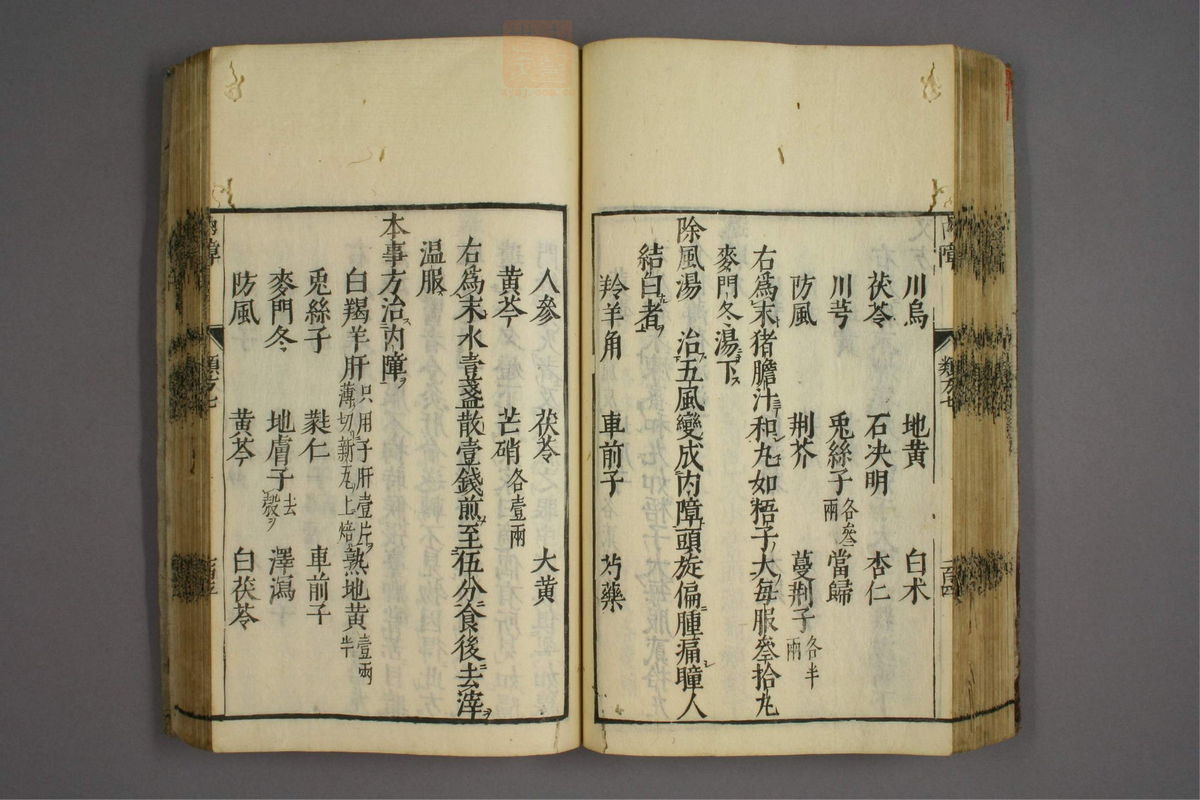 川烏 地黄 白朮
茯苓 石决明 杏仁
川芎 兎絲子各叁兩 當歸
防風 荆芥 蔓荆子各半兩
右爲末猪膽汁和丸如梧子大每服叁拾丸
麥門冬湯下
除風湯 治五風變成内障頭旋偏腫痛瞳人
結白者
羚羊角 車前子 芍藥
人參 茯苓 大黄
黄芩 芒硝各壹兩
右爲末水壹盞散壹錢煎至伍分食後去滓
温服
本事方治内障
白羯羊肝只用子肝壹片薄切新瓦上焙 熟地黄壹兩半
兎絲子 蕤仁 車前子
麥門冬 地膚子去殼 澤瀉
防風 黄芩 白茯苓
類方七